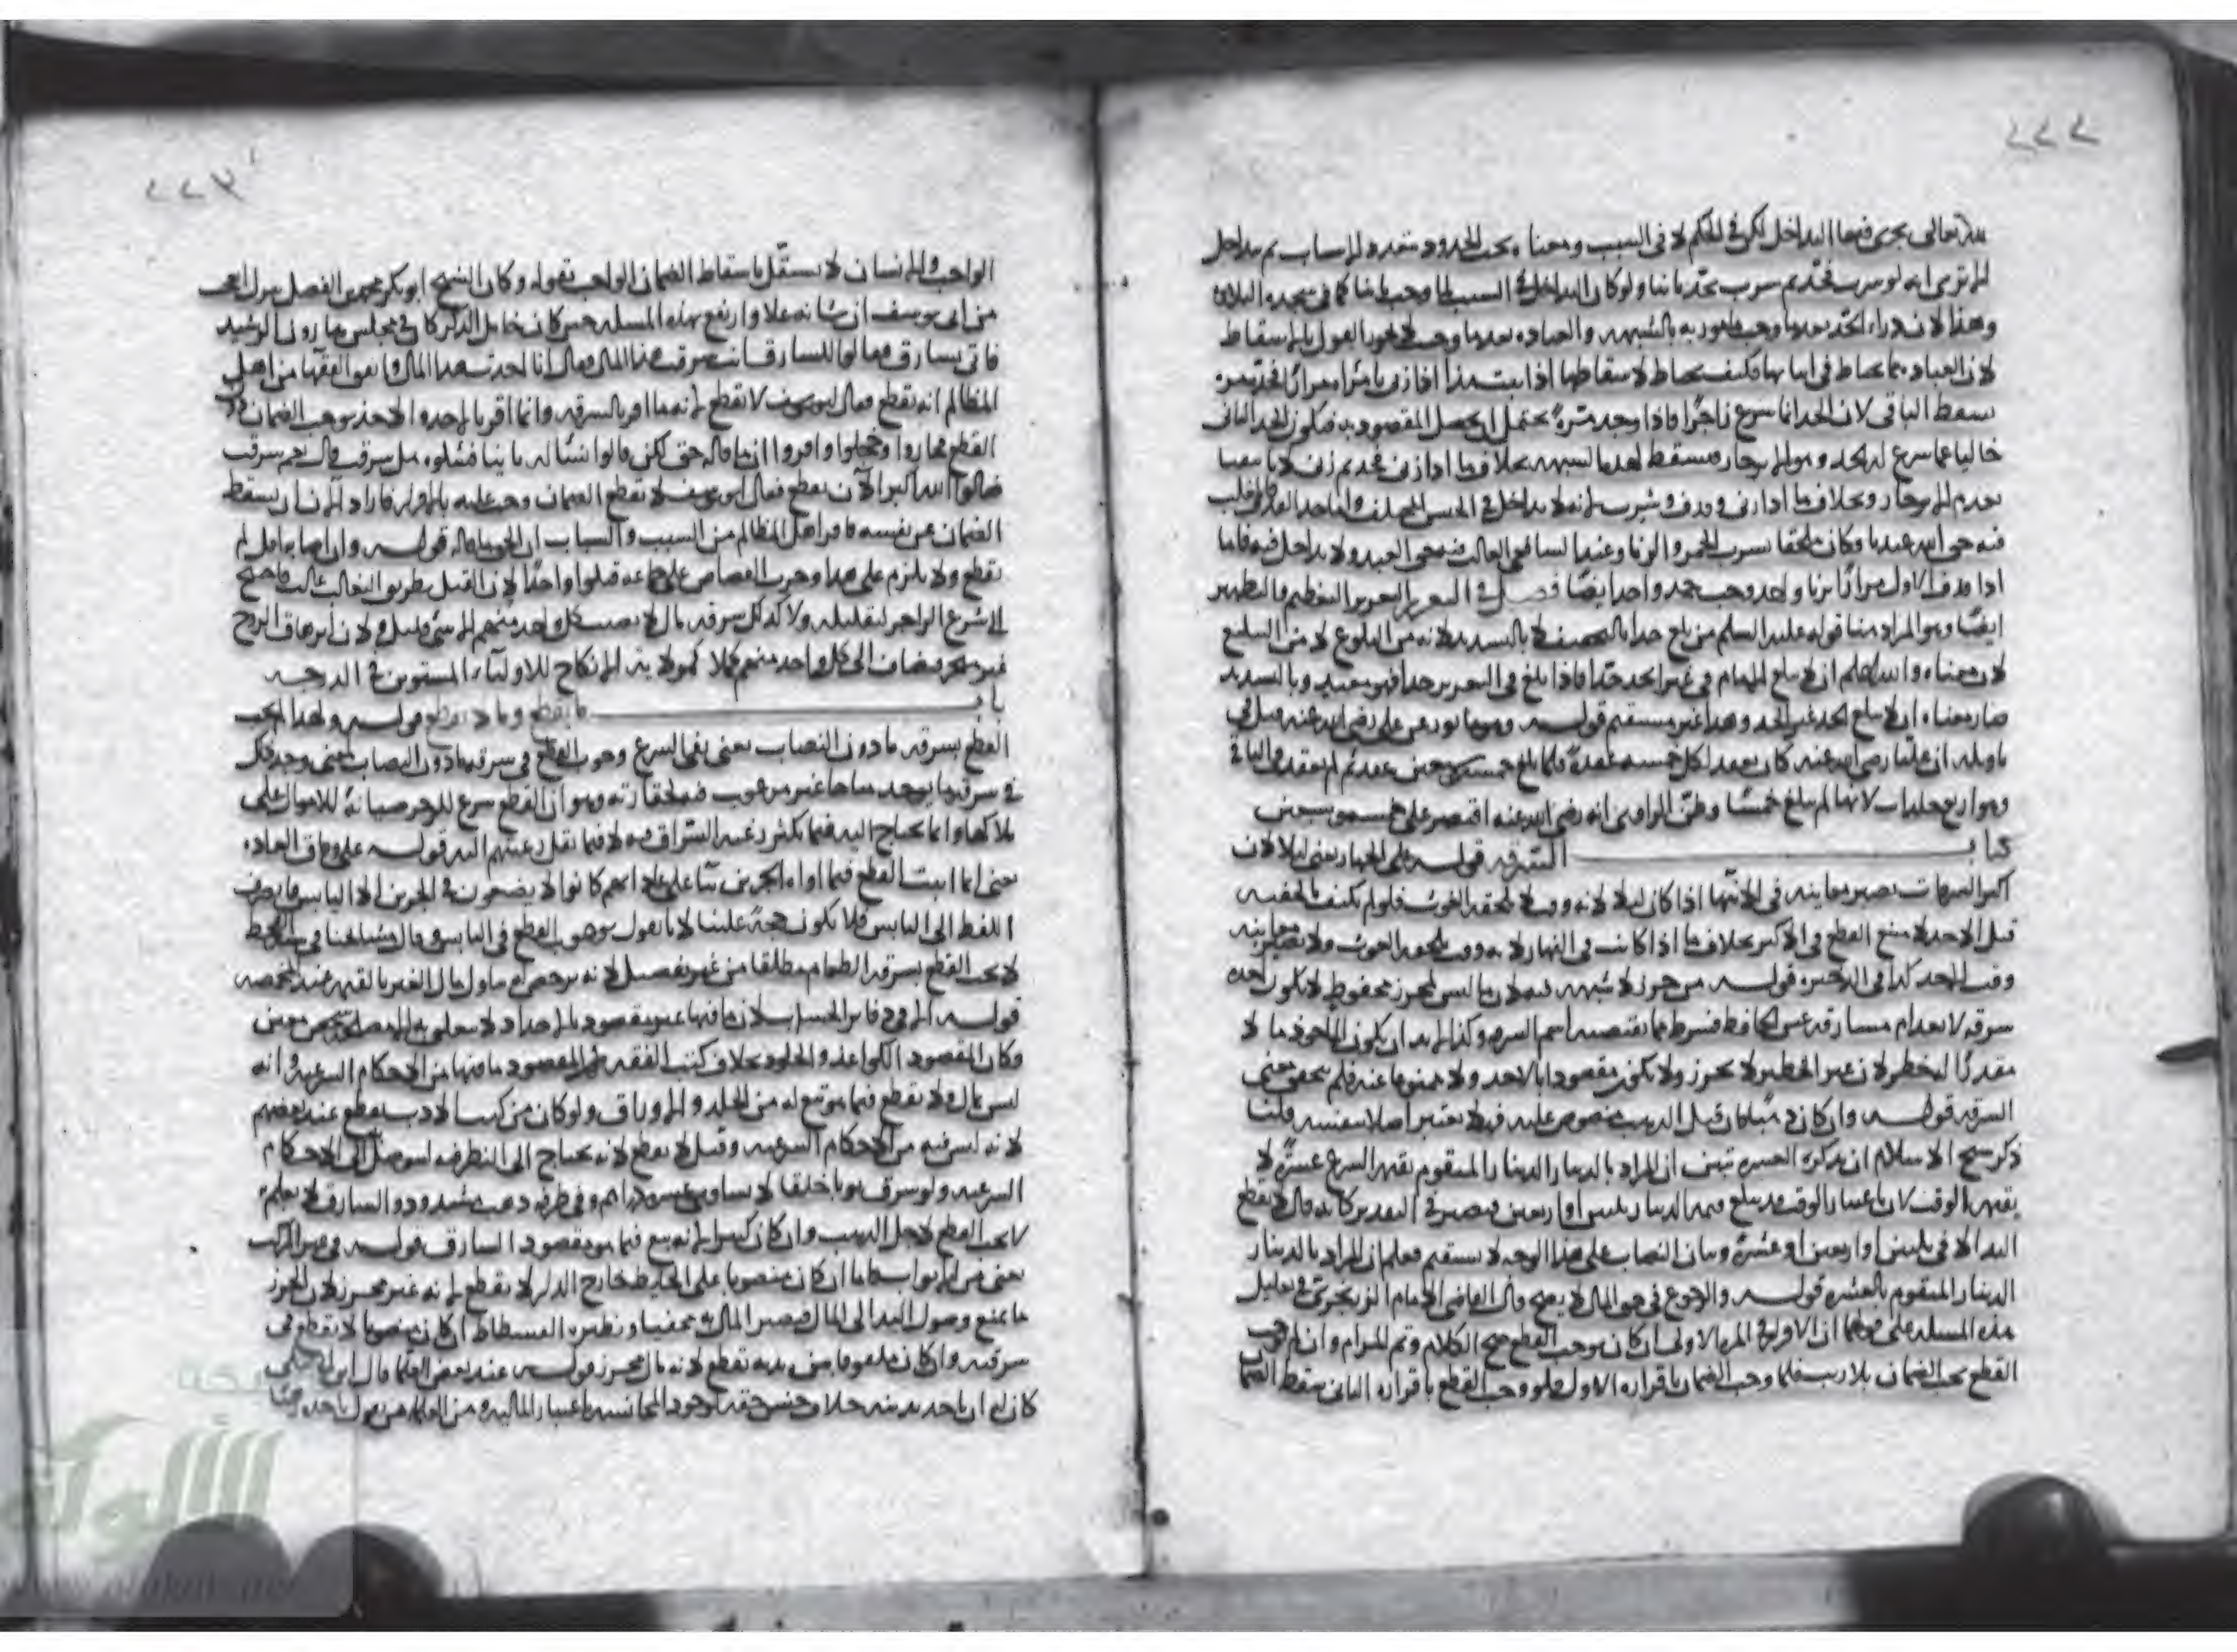 ٢٢٢
لله تعالى يجرى فيها التداخل لكن في الحكم لا في السبب ومعناه يجب الحدود متعدد الاسباب ثم يتداخل
الا ترى انه لو شرب فحد ثم شرب يحد ثانيا ولو كان التداخل في السبب لما وجب ثانيا كما في سجدة التلاوة
وهذا لان دراء الحد بعدما وجب مامور به بالشبهة والعبادة بعدما وجب لا يجوز القول بالاسقاط
لان العبادة مما يحتاط في اثباتها فكيف يحتاط لاسقاطها اذا ثبت هذا اذا زنى بامراة مرارا فحد مرة
يسقط الباقي لان الحد انما شرع زاجرا فاذا وجد مرة يحتمل ان يحصل المقصود به فيكون الحد الثاني
خاليا عما شرع له الحد وهو الانزجار فيسقط لهذه الشبهة بخلاف ما اذا زنى فحد ثم زنى لانا تيقنا
بعدم الانزجار وبخلاف ما اذا زنى وقذف وشرب لانه لا يتداخل في الجنس المختلف واما حد القذف فالغالب
فيه حق الله عندنا وكان ملحقا بشرب الخمر والزنا وعند الشافعي الغالب فيه حق العبد ولا يتداخل فيه فاما
اذا قذف الاول مرارا بزنا واحد وجب حد واحد ايضا فصل في التعزير التعزير التعظيم والتطهير
ايضا وهو المراد هنا قوله عليه السلم من بلغ حدا بالتخفيف لا بالتشديد لانه من البلوغ لا من التبليغ
لان معناه والله اعلم ان لا يبلغ الامام في غير الحد حدا فاذا بلغ في التعزير حدا فهو معتد وبالتشديد
صار معناه ان لا يبلغ الحد غير الحد وهذا غير مستقيم قوله وهو ماثور عن علي رضي الله عنه قيل في
تاويله ان عليا رضي الله عنه كان يعقد لكل خمسة عقدة فلما بلغ خمسة وسبعين عقد ثم لم يعقد في الباقي
وهو اربع جلدات لانها لم تبلغ خمسا وظن الراوي انه رضي الله عنه اقتصر على خمسة وسبعين
كتاب السرقة قوله على الجهار يعني ليلا لان
اكثر السرقات تصير معاينة في الانتهاء اذا كان ليلا لانه وقت لا يلحقه الغوث فلو لم يكتف بالخفية
قبل الاخذ لامتنع القطع في الاكثر بخلاف ما اذا كانت في النهار لانه وقت يلحقه الغوث ولا تصير معاينة
وقت الاخذ كذا في الذخيرة قوله من حرز لا شبهة فيه لان ما ليس بمحرز محفوظ لا يكون اخذه
سرقة لانعدام مسارقة عين الحافظ فشرط ما يقتضيه اسم السرقة وكذا لا بد ان يكون الماخوذ مالا
مقدرا له خطر لان غير الخطير لا يحرز ولا يكون مقصودا بالاخذ ولا ممنوعا عنه فلم يتحقق معنى
السرقة قوله وان كان ذهبا كان قيل الذهب منصوص عليه فلا يعتبر اصلا بنفسه قلنا
ذكر شيخ الاسلام ان بذكر العشرة تبين ان المراد بالدينار الدينار المتقوم بقيمة الشرع عشرة لا
بقيمة الوقت لان باعتبار الوقت قد يبلغ قيمة الدينار ثلثين او اربعين فيصير في التقدير كانه قال لا يقطع
اليد الا في ثلثين او اربعين او عشرة وبيان النصاب على هذا الوجه لا يستقيم فعلم ان المراد بالدينار
الدينار المتقوم بالعشرة قوله والرجوع في حق المال لا يصح قال القاضي الامام الزرنجري في تعليل
هذه المسئلة على قولهما ان الاقرار في المرة الاولى ان كان يوجب القطع صح الكلام وتم المرام وان لم يوجب
القطع يجب الضمان بلا ريب فلما وجب الضمان باقراره الاول فلو وجب القطع باقراره الثاني يسقط الضمان
٢٢٣
الواجب والانسان لا يستقل باسقاط الضمان الواجب بقوله وكان الشيخ ابو بكر محمد بن الفضل يقول العجب
من ابي يوسف ان شانه علا وارتفع بهذه المسئلة حين كان خامل الذكر كان في مجلس هارون الرشيد
فاتي بسارق فقالوا للسارق انت سرقت هذا المال فقال انا اخذت هذا المال واتفق الفقهاء من اهل
المظالم انه يقطع فقال ابو يوسف لا يقطع لانه ما اقر بالسرقة وانما اقر بالاخذ والاخذ يوجب الضمان دون
القطع فحاروا وخجلوا واقروا ان ما قاله حق لكن قالوا نساله ثانيا فسئلوه هل سرقت قال نعم سرقت
فقالوا الله اكبر الآن يقطع فقال ابو يوسف لا يقطع الضمان وجب عليه بالاقرار فاراد الآن ان يسقط
الضمان عن نفسه فاقر اهل المظالم من الشيب والشباب ان الحق ما قاله قوله وان اصابه اقل لم
يقطع ولا يلزم على هذا وجوب القصاص على جماعة قتلوا واحدا لان القتل بطريق التغالب غالب فاحتيج
الى شرع الزاجر لتقليله ولا كذلك سرقة مال لا يصيب كل واحد منهم الا شئ قليل ولان ازهاق الروح
غير متجز فيضاف الى كل واحد منهم كملا كولاية الانكاح للاولياء المستوين في الدرجة
باب ما يقطع وما لا يقطع قوله ولهذا لم يجب
القطع بسرقة ما دون النصاب يعني نفى الشرع وجوب القطع في سرقة ما دون النصاب لمعنى وجد ذلك
في سرقة ما يوجد مباحا غير مرغوب فيه لحقارته وهو ان القطع شرع للزجر صيانة للاموال على
ملاكها وانما يحتاج اليه فيما تكثر رغبة السراق فيه لا فيما تقل رغبتهم اليه قوله على وفاق العادة
يعني انما اثبت القطع فيما اواه الجرين بناء على عادتهم كانوا لا يضعون في الجرين الا اليابس فانصرف
اللفظ الى اليابس فلا يكون حجة علينا لانا نقول بوجوب القطع في اليابس وقال مشايخنا في سنة القحط
لا يجب القطع بسرقة الطعام مطلقا من غير تفصيل لانه يرخص له تناول مال الغير بالقهر عند المخمصة
قوله الا في دفاتر الحساب لان ما فيها غير مقصود بالاخذ اذ لا يتعلق به مصلحة غير معين
وكان المقصود الكواغذ والجلود بخلاف كتب الفقه فان المقصود ما فيها من الاحكام الشرعية وانه
ليس بمال ولا يقطع فيما هو تبع له من الجلد والاوراق ولو كان من كتب الادب يقطع عند بعضهم
لانه ليس فيه من الاحكام الشرعية وقيل لا يقطع لانه يحتاج الى النظر فيه ليتوصل الى الاحكام
الشرعية ولو سرق ثوبا خلقا لا يساوي عشرة دراهم وفي طرفه ذهب مشدود والسارق لا يعلم
لا يجب القطع لاجل الذهب وان كان كثيرا لانه تبع فيما هو مقصود السارق قوله
يعني من الابواب فاما ان كان منصوبا على الحائط خارج الدار لا يقطع لانه غير محرز لان الحرز
ما يمنع وصول اليد الى المال فيصير المال به مختفيا ونظيره الفسطاط ان كان منصوبا لا يقطع في
سرقته وان كان ملفوفا بين يديه يقطع لانه مال محرز قوله عند بعض العلما قال ابن ابي ليلى
كان له ان ياخذ بدينه خلاف جنس حقه لوجود المجانسة باعتبار المالية ومن العلماء من يقول ياخذه رهنا